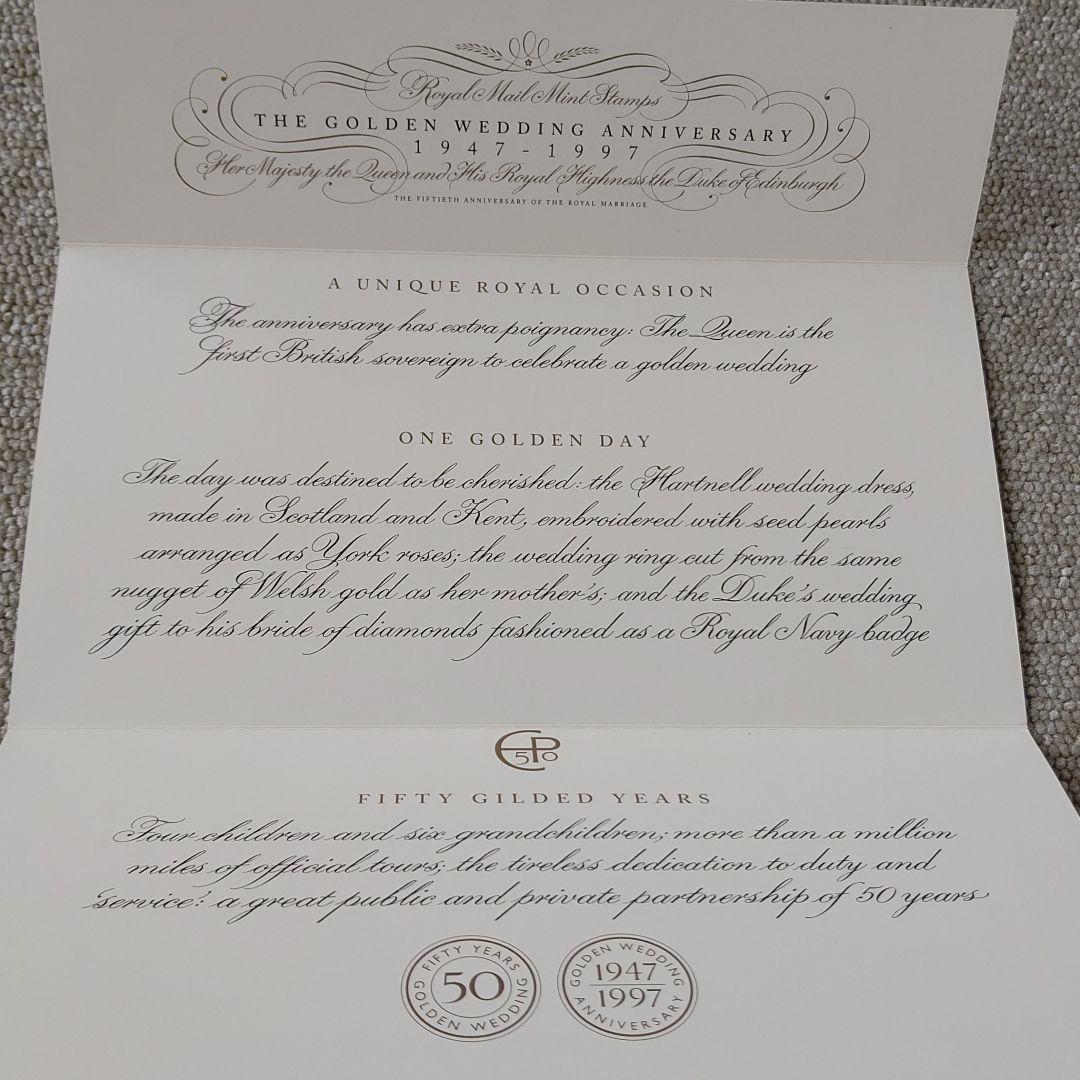 Royal Mail Mint Stamps
THE GOLDEN WEDDING ANNIVERSARY
1947-1997
Her Majesty the Queen and His Royal Highness the Duke of Edinburgh
THE FIFTIETH ANNIVERSARY OF THE ROYAL MARRIAGE
A UNIQUE ROYAL OCCASION
The anniversary has extra poignancy: The Queen is the
first British sovereign to celebrate a golden wedding
ONE GOLDEN DAY
The day was destined to be cherished: the Hartnell wedding dress,
made in Scotland and Kent, embroidered with seed pearls
arranged as York roses; the wedding ring cut from the same
nugget of Welsh gold as her mother's; and the Duke's wedding
gift to his bride of diamonds fashioned as a Royal Navy badge
EP50
FIFTY GILDED YEARS
Four children and six grandchildren; more than a million
miles of official tours; the tireless dedication to duty and
'service': a great public and private partnership of 50 years
FIFTY YEARS
50
GOLDEN WEDDING
GOLDEN WEDDING
1947
1997
ANNIVERSARY